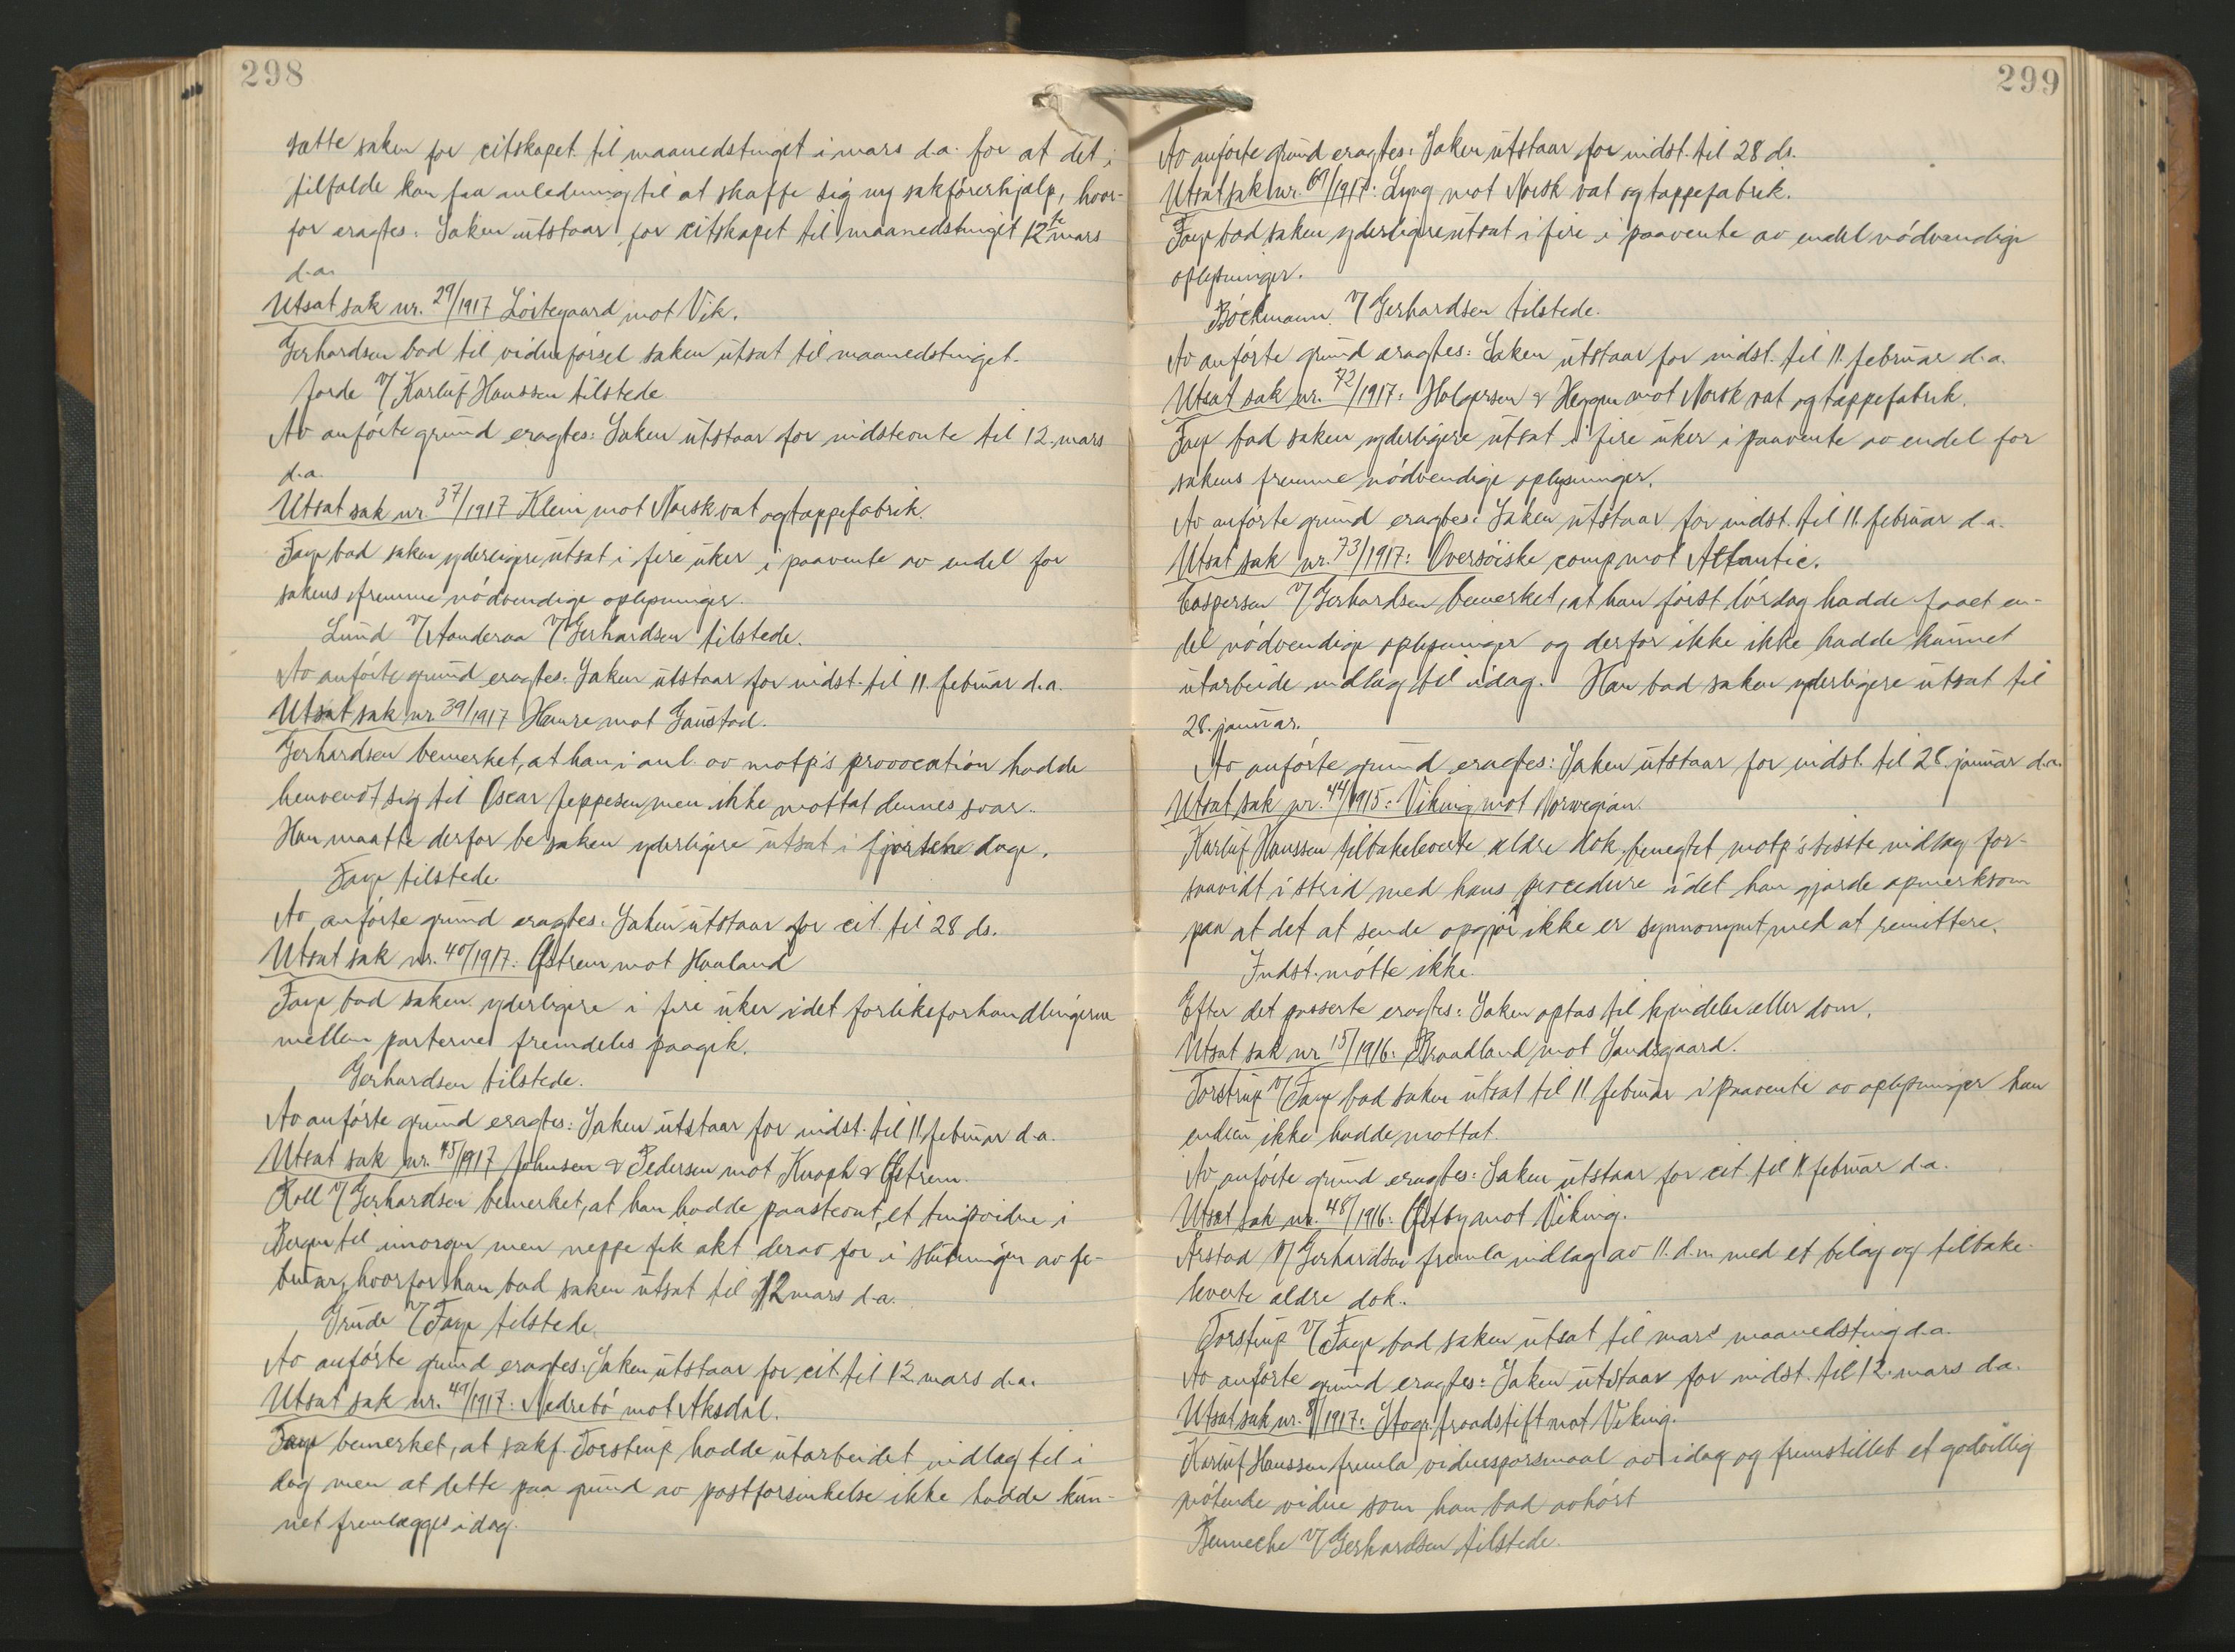 298
sætte saken for citskapet til maanedstinget i mars d.a. for at det i
tilfælde kan faa anledning til at skaffe sig ny sakførerhjælp, hvor-
for eragtes: Saken utstaar for citskapet til maanedstinget 12te mars
d.a.
Utsat sak nr. 29/1917 Lørtegaard mot Vik.
Gerhardsen bad til vidneførsel saken utsat til maanedstinget.
Jorde v/ Karluf Hanssen tilstede.
Av anførte grund eragtes: Saken utstaar for indstevnte til 12. mars
d.a.
Utsat sak nr. 37/1917 Klein mot Norsk vat og tappefabrik.
Faye bad saken yderligere utsat i fire uker i paavente av endel for
sakens fremme nødvendige oplysninger.
Lund v/ Aanderaa v/ Gerhardsen tilstede.
Av anførte grund eragtes: Saken utstaar for indst. til 11. februar d.a.
Utsat sak nr 39/1917 Haure mot Gaustad.
Gerhardsen bemerket, at han i anl. av motp's provocation hadde
henvendt sig til Oscar Jeppesen men ikke mottat dennes svar.
Han maatte derfor be saken yderligere utsat i fjorten dage.
Faye tilstede.
Av anførte grund eragtes: Saken utstaar for cit. til 28 ds.
Utsat sak nr. 40/1917: Østrem mot Haaland
Faye bad saken yderligere i fire uker idet forliksforhandlingerne
mellem parterne fremdeles paagik.
Gerhardsen tilstede.
Av anførte grund eragtes: Saken utstaar for indst. til 11 februar d.a.
Utsat sak nr. 45/1917 Johnsen & Pedersen mot Knoph & Østrem.
Roll v/ Gerhardsen bemerket, at han hadde paastevnt et tingsvidne i
Bergen til imorgen men neppe fik akt derav før i slutningen av fe-
bruar, hvorfor han bad saken utsat til 12 mars d.a.
Grude v/ Faye tilstede.
Av anførte grund eragtes: Saken utstaar for cit til 12 mars d.a.
Utsat sak nr. 49/1917: Nedrebø mot Aksdal.
Faye bemerket, at sakf. Torstrup hadde utarbeidet indlæg til i
dag men at dette paa grund av postforsinkelse ikke hadde kun-
net fremlægges idag.
299
Av anførte grund eragtes: Saken utstaar for indst. til 28 ds.
Utsat sak nr. 69/1917: Lyng mot Norsk vat og tappefabrik.
Faye bad saken yderligere utsat i fire i paavente av endel nødvendige
oplysninger.
Böckmann v/ Gerhardsen tilstede.
Av anførte grund eragtes: Saken utstaar for indst. til 11. februar d.a.
Utsat sak nr. 72/1917: Holgersen & Heggen mot Norsk vat og tappefabrik.
Faye bad saken yderligere utsat i fire uker i paavente av endel for
sakens fremme nødvendige oplysninger.
Av anførte grund eragtes: Saken utstaar for indst. til 11. februar d.a.
Utsat sak nr. 73/1917: Oversøiske comp. mot Atlantic.
Caspersen v/ Gerhardsen bemerket, at han først lørdag hadde faaet en-
del nødvendige oplysninger og derfor ikke ikke hadde kunnet
utarbeide indlæg til idag. Han bad saken yderligere utsat til
28. januar.
Av anførte grund eragtes: Saken utstaar for indst. til 28. januar d.a.
Utsat sak nr. 44/1915: Viking mot Norwegian.
Karluf Hanssen tilbakeleverte ældre dok, benegtet motp's sisste indlæg for-
saavidt i strid med hans procedure idet han gjorde opmerksom
paa at det at sende opgjør ikke er synnonymt med at remittere.
Indst. møtte ikke.
Efter det passerte eragtes: Saken optas til kjendelse eller dom.
Utsat sak nr 15/1916: Braadland mot Sandsgaard.
Torstrup v/ Faye bad saken utsat til 11 februar i paavente av oplysninger han
endnu ikke hadde mottat.
Av anførte grund eragtes: Saken utstaar for cit. til 11 februar d.a.
Utsat sak nr. 48/1916: Østby mot Viking.
Årstad v/ Gerhardsen fremla indlæg av 11. d.m. med et bilag og tilbake-
leverte ældre dok.
Torstrup v/ Faye bad saken utsat til mars maanedsting d.a.
Av anførte grund eragtes: Saken utstaar for indst. til 12. mars d.a.
Utsat sak nr. 8/1917: Stog. fraadstift mot Viking.
Karluf Hanssen fremla vidnespørsmaal av idag og fremstillet et godvillig
møtende vidne som han bad avhørt
Benneche v/ Gerhardsen tilstede.